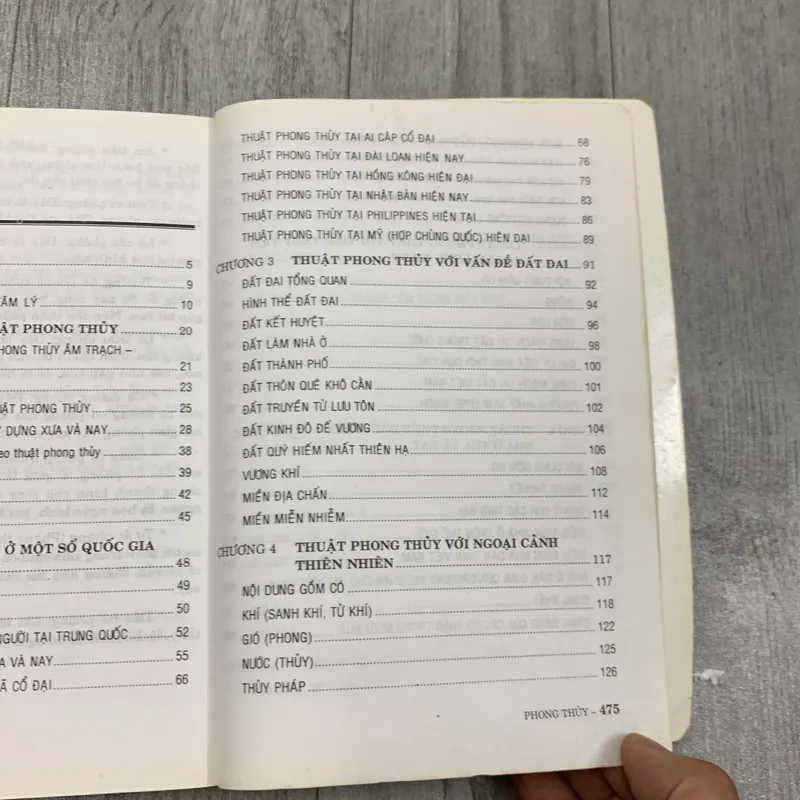 5
9
ÂM LÝ 10
ẬT PHONG THỦY 20
PHONG THỦY ÂM TRẠCH –
21
23
UẬT PHONG THỦY 25
Y DỰNG XƯA VÀ NAY 28
eo thuật phong thủy 38
39
42
45
Ở MỘT SỐ QUỐC GIA
48
49
50
NGƯỜI TẠI TRUNG QUỐC 52
A VÀ NAY 55
Ã CỔ ĐẠI 66
THUẬT PHONG THỦY TẠI AI CẬP CỔ ĐẠI 68
THUẬT PHONG THỦY TẠI ĐÀI LOAN HIỆN NAY 76
THUẬT PHONG THỦY TẠI HỒNG KÔNG HIỆN ĐẠI 79
THUẬT PHONG THỦY TẠI NHẬT BẢN HIỆN NAY 83
THUẬT PHONG THỦY TẠI PHILIPPINES HIỆN TẠI 86
THUẬT PHONG THỦY TẠI MỸ (HỢP CHỦNG QUỐC) HIỆN ĐẠI 89
CHƯƠNG 3 THUẬT PHONG THỦY VỚI VẤN ĐỀ ĐẤT ĐAI 91
ĐẤT ĐAI TỔNG QUAN 92
HÌNH THỂ ĐẤT ĐAI 94
ĐẤT KẾT HUYỆT 96
ĐẤT LÀM NHÀ Ở 98
ĐẤT THÀNH PHỐ 100
ĐẤT THÔN QUÊ KHÔ CẰN 101
ĐẤT TRUYỀN TỪ LƯU TÔN 102
ĐẤT KINH ĐÔ ĐẾ VƯƠNG 104
ĐẤT QUÝ HIẾM NHẤT THIÊN HẠ 106
VƯƠNG KHÍ 108
MIỀN ĐỊA CHẤN 112
MIỀN MIỄN NHIỄM 114
CHƯƠNG 4 THUẬT PHONG THỦY VỚI NGOẠI CẢNH
THIÊN NHIÊN 117
NỘI DUNG GỒM CÓ 117
KHÍ (SANH KHÍ, TỬ KHÍ) 118
GIÓ (PHONG) 122
NƯỚC (THỦY) 125
THỦY PHÁP 126
PHONG THỦY – 475